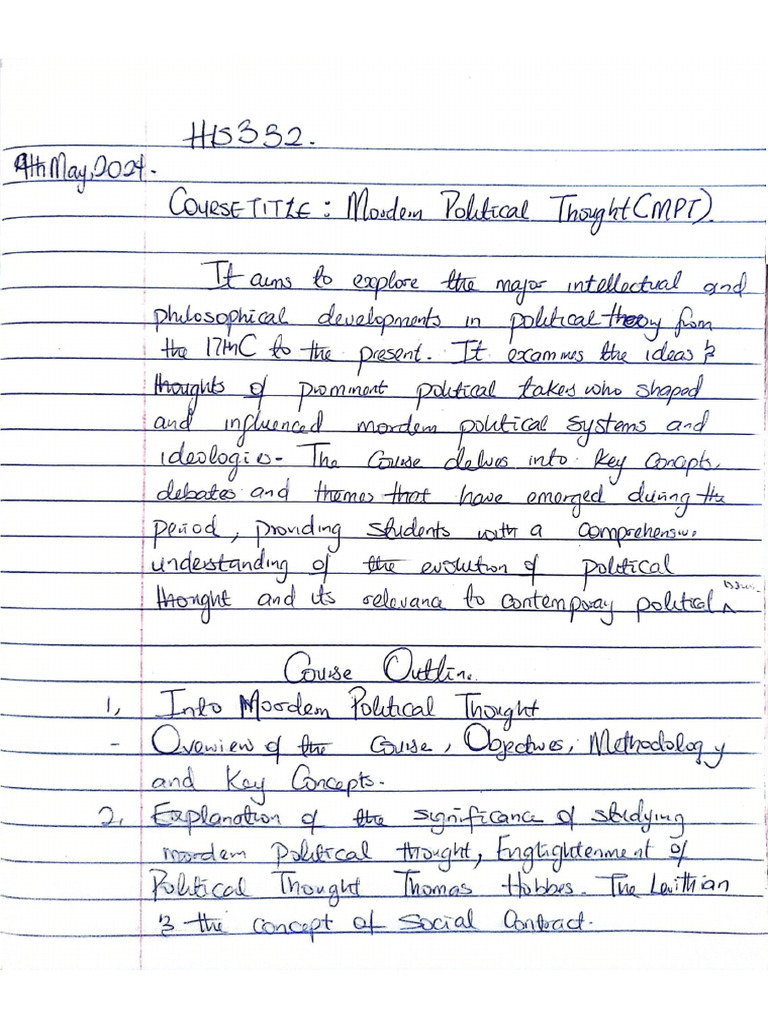 HIS332.
4th May, 2024.
COURSE TITLE: Mordern Political Thought (MPT).
It aims to explore the major intellectual and
philosophical developments in political theory from
the 17thC to the present. It examines the ideas &
thoughts of prominent political takers who shaped
and influenced mordern political systems and
ideologies. The Course delves into key concepts,
debates and themes that have emerged during the
period, providing students with a comprehensive
understanding of the evolution of political
thought and its relevance to contempoary political
Course Outline
1, Into Moordern Political Thought
- Overview of the Course, Objectives, Methodology
and Key Concepts.
2, Explanation of the significance of studying
mordern Political thought, Englightenment of
Political Thought Thomas Hobbes. The Levithian
& the concept of Social Contract.